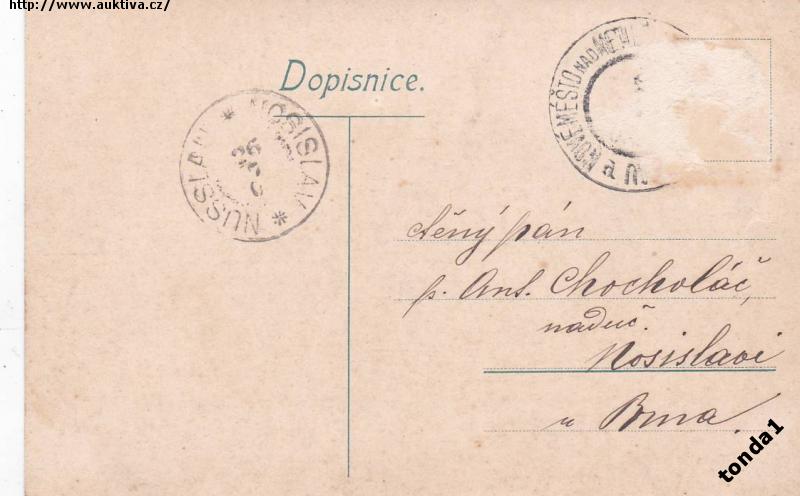 http://www.auktiva.cz/
Dopisnice.
NOVÉ MĚSTO NAD METUJÍ
NOSISLAV * NUSSLAU *
ctěný pán
p. Ant. Chocholáč,
naduč.
Nosislavi
u Brna.
tonda1